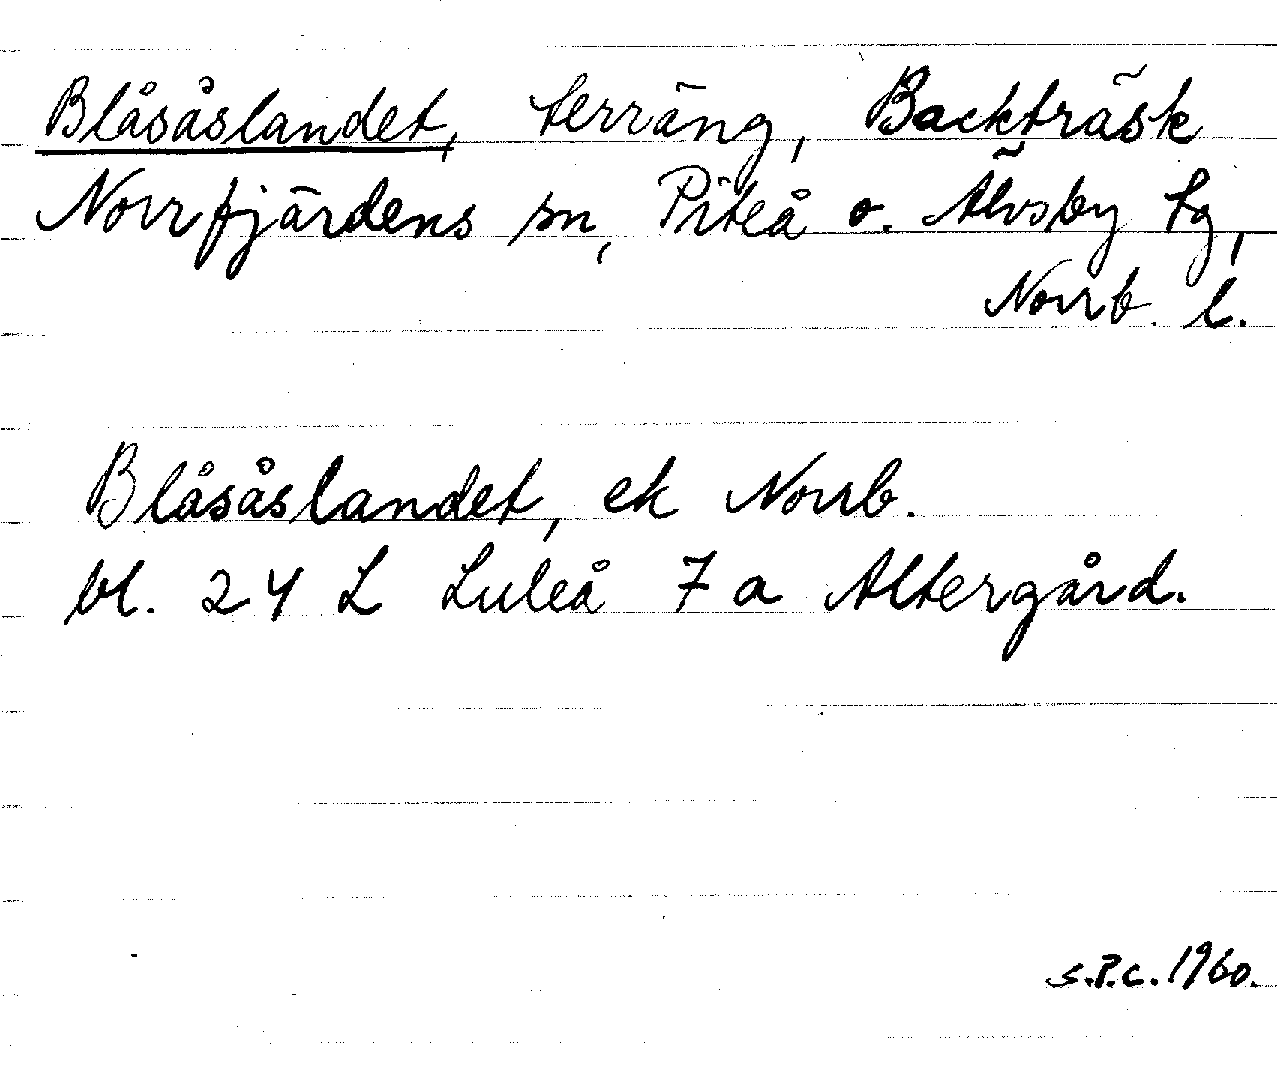 Blåsåslandet, terräng, Backträsk
Norrfjärdens sn, Piteå o. Älvsby tg,
Norrb. l.
Blåsåslandet, ek Norrb.
bl. 24 L Luleå 7 a Altergård.
S.P.C. 1960.